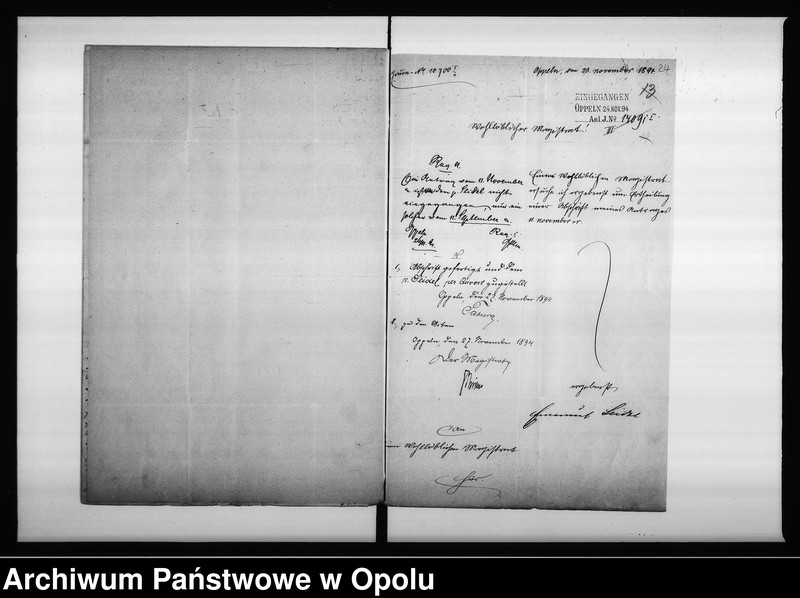 Journ. No 10700 I
Oppeln, den 23. November 1894
24
13
EINGEGANGEN
OPPELN 24.NOV.94
Anl. J. No 1709
III
Wohllöblicher Magistrat!
Einen Wohllöblichen Magistrat
ersuche ich ergebenst um Ertheilung
einer Abschrift meines Antrages
11 November cr.
ergebenst
Seidel
Reg. II.
Ein Antrag vom 11. November
Seidel nicht
eingegangen, nur ein
solcher vom 11. September
Oppeln
1, Abschrift gefertigt und dem
p. Seidel per Couvert zugestellt
Oppeln, den 27. November 1894
2, zu den Akten
Oppeln, den 27. November 1894
Der Magistrat
An
Wohllöblichen Magistrat
hier.
Archiwum Państwowe w Opolu